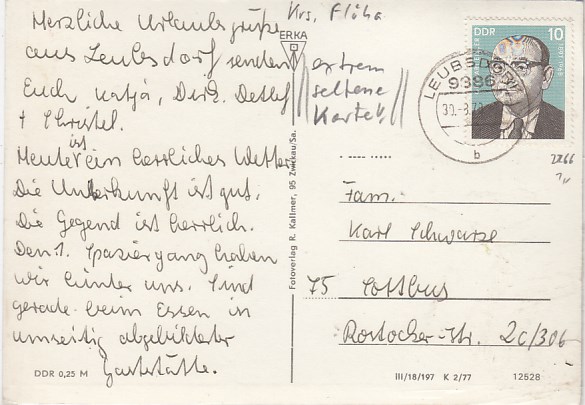 Herzliche Urlaubsgrüße
aus Leubsdorf senden
Euch Katja, Dirk, Detlef
+ Christel.
Heute ist ein herrliches Wetter.
Die Unterkunft ist gut.
Die Gegend ist herrlich.
Den 1. Spaziergang haben
wir hinter uns. Sind
gerade beim Essen in
umseitig abgebildeter
Gaststätte.
DDR 0,25 M
Krs. Flöha
ERKA
extrem
seltene
Karte!!
Fotoverlag R. Kallmer, 95 Zwickau/Sa.
DDR 10
LEUBSDORF
9386
b
Fam.
Karl Schwarze
75 Cottbus
Rostocker-Str. 2c/306
III/18/197 K 2/77
12528